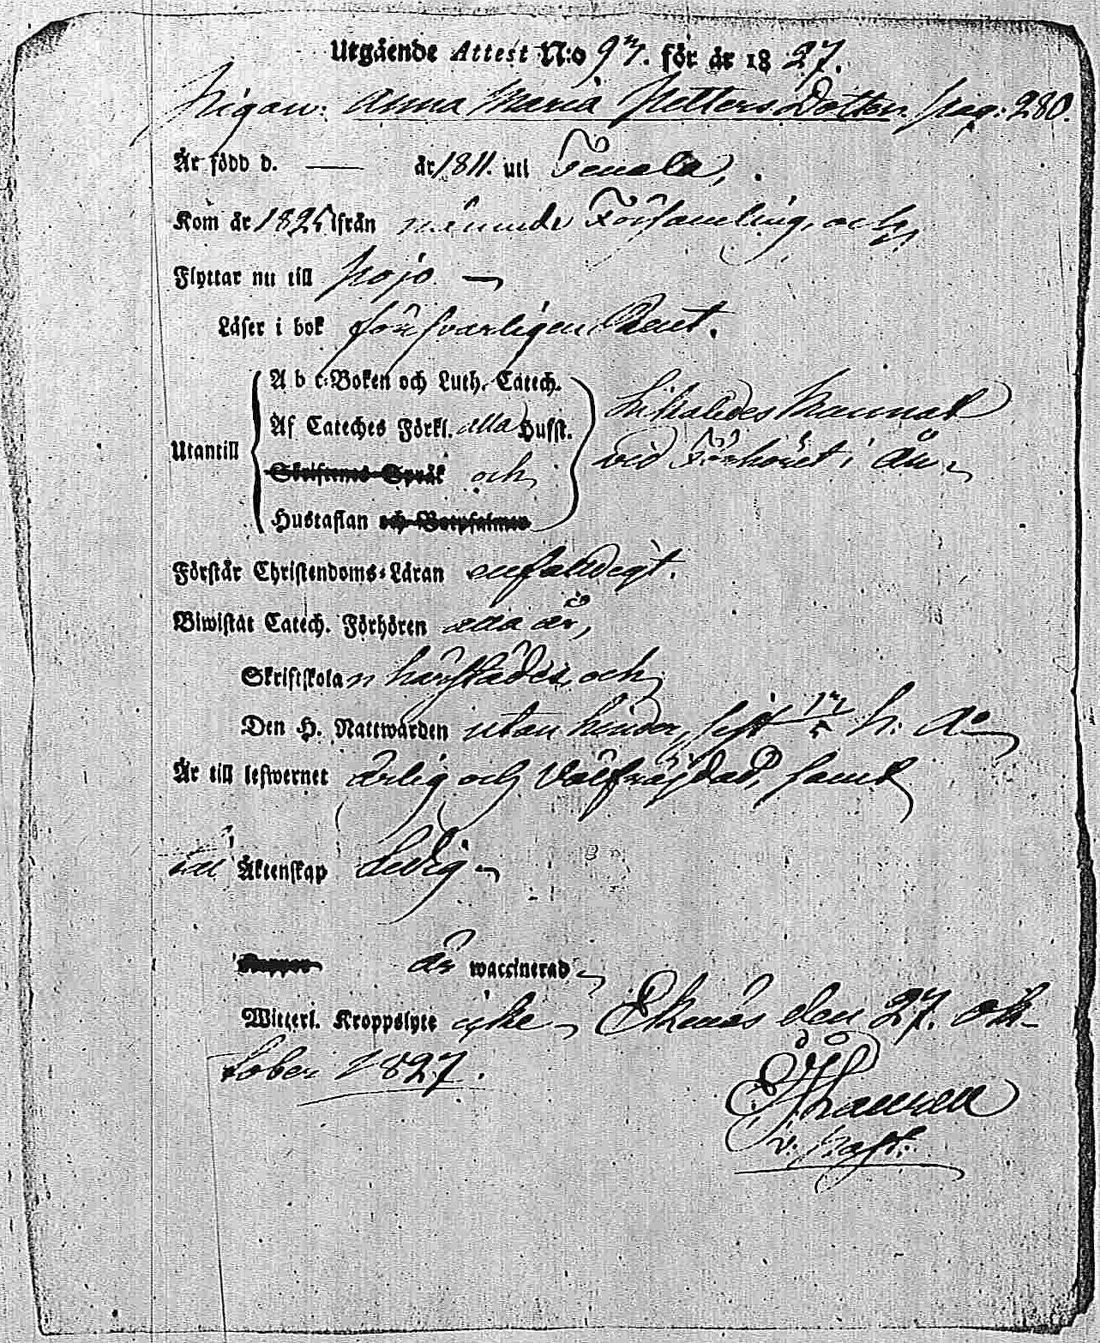 Utgående Attest N:o 97. för år 1827.
Pigan: Anna Maria Petters Dotter. pag: 280.
Är född d. — år 1811. uti Tenala,
Kom år 1825 ifrån nämnde Församling, och
Flyttar nu till Pojo —
Läser i bok försvarligen rent.
Utantill
A b c-Boken och Luth. Catech.
Af Cateches Förkl. alla Hufst.
Skriftenes Språk och
Hustaflan och Botpsalmer
vid Förhöret i
Förstår Christendoms-Läran enfaldigt.
Biwistat Catech. Förhören alla år,
Skriftskolan härstädes och
Den H. Nattwarden utan hinder, sist h: å
Är till lefwernet ärlig och välfräjdad, samt
till Äktenskap ledig
är waccinerad
Witterl. Kroppslyte icke Ekenäs den 27. Ok-
tober 1827.
v. Past.